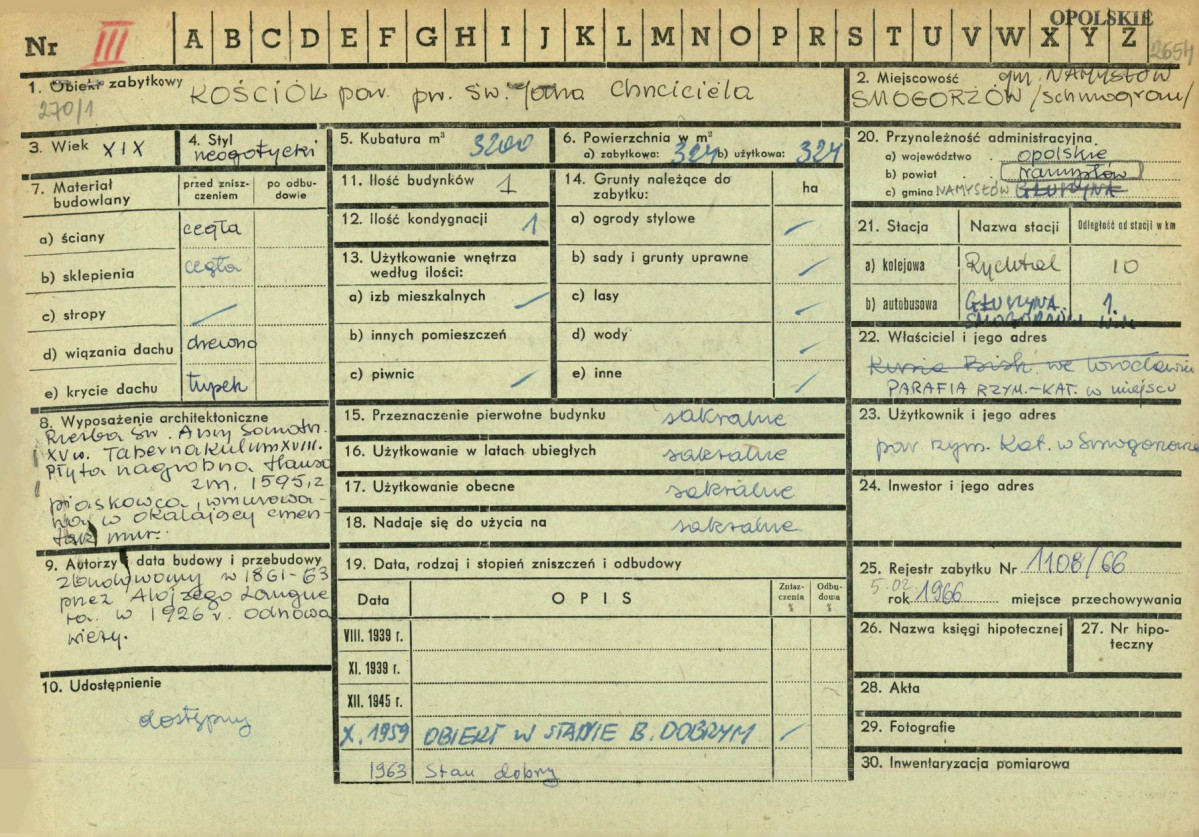 OPOLSKIE
Nr III A B C D E F G H I J K L M N O P R S T U V W X Y Z
2654
1. Obiekt zabytkowy KOŚCIÓŁ par. pw. Św. Jana Chrzciciela
270/1
2. Miejscowość gm. NAMYSŁÓW
SMOGORZÓW /Schmograu/
3. Wiek XIX
4. Styl
neogotycki
5. Kubatura m³ 3200
6. Powierzchnia w m²
a) zabytkowa: 324 b) użytkowa: 324
7. Materiał budowlany
przed zniszczeniem
po odbudowie
a) ściany cegła
b) sklepienia cegła
c) stropy
d) wiązania dachu drewno
e) krycie dachu łupek
8. Wyposażenie architektoniczne
Rzeźba Św. Anny Samotrz.
XV w. Tabernakulum XVIII.
Płyta nagrobna Hansa
zm. 1595, z
piaskowca, wmurowa-
na w okalający cmen-
tarz mur.
9. Autorzy i data budowy i przebudowy
zbudowany w 1861-63
przez Alojzego Langne
ra. w 1926 r. odnowa
wieży.
10. Udostępnienie
dostępny
11. Ilość budynków 1
12. Ilość kondygnacji 1
13. Użytkowanie wnętrza
według ilości:
a) izb mieszkalnych
b) innych pomieszczeń
c) piwnic
14. Grunty należące do
zabytku:
ha
a) ogrody stylowe
b) sady i grunty uprawne
c) lasy
d) wody
e) inne
15. Przeznaczenie pierwotne budynku sakralne
16. Użytkowanie w latach ubiegłych sakralne
17. Użytkowanie obecne sakralne
18. Nadaje się do użycia na sakralne
19. Data, rodzaj i stopień zniszczeń i odbudowy
Data OPIS Zniszczenia % Odbudowa %
VIII. 1939 r.
XI. 1939 r.
XII. 1945 r.
X. 1959 OBIEKT W STANIE B. DOBRYM
1963 Stan dobry
20. Przynależność administracyjna
a) województwo opolskie
b) powiat Namysłów
c) gmina NAMYSŁÓW GŁUSZYNA
21. Stacja Nazwa stacji Odległość od stacji w km
a) kolejowa Rychtal 10
b) autobusowa GŁUSZYNA 1.
SMOGORZÓW
22. Właściciel i jego adres
Kuria Bisk. we Wrocławiu
PARAFIA RZYM.-KAT. w miejscu
23. Użytkownik i jego adres
par. rzym. Kat. w Smogorzowie
24. Inwestor i jego adres
25. Rejestr zabytku Nr 1108/66
5.02
rok 1966 miejsce przechowywania
26. Nazwa księgi hipotecznej
27. Nr hipo-
teczny
28. Akta
29. Fotografie
30. Inwentaryzacja pomiarowa